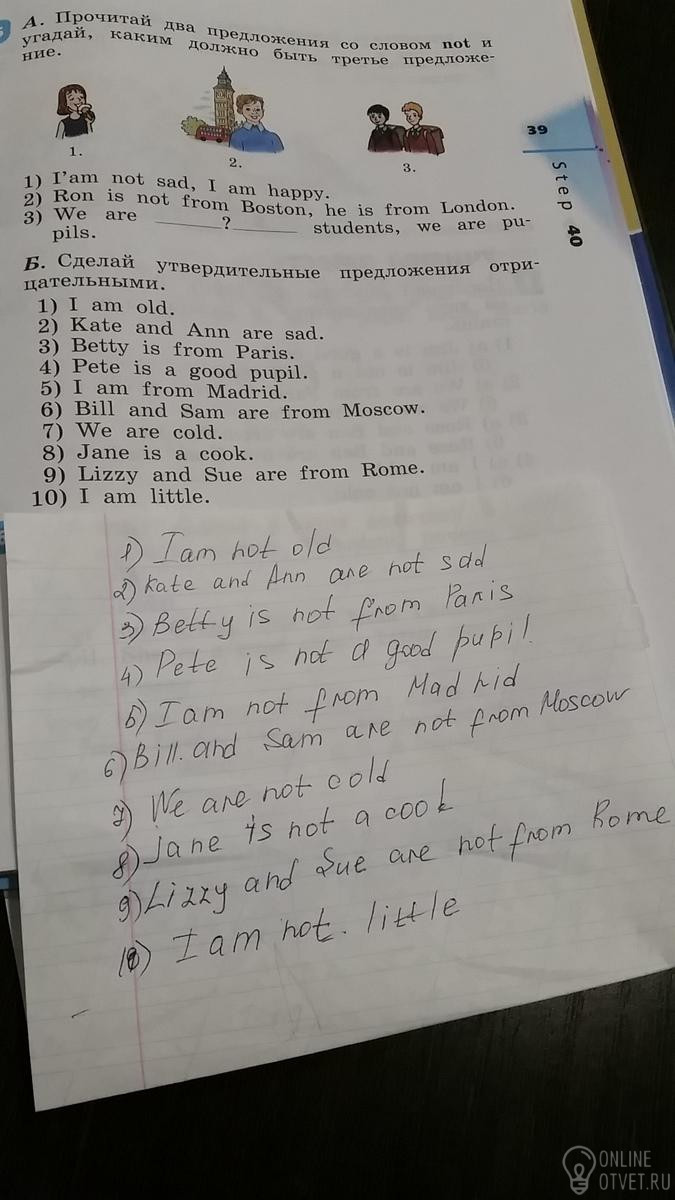 А. Прочитай два предложения со словом not и
угадай, каким должно быть третье предложе-
ние.
1.
2.
3.
39
Step 40
1) I'am not sad, I am happy.
2) Ron is not from Boston, he is from London.
3) We are ______?______ students, we are pu-
pils.
Б. Сделай утвердительные предложения отри-
цательными.
1) I am old.
2) Kate and Ann are sad.
3) Betty is from Paris.
4) Pete is a good pupil.
5) I am from Madrid.
6) Bill and Sam are from Moscow.
7) We are cold.
8) Jane is a cook.
9) Lizzy and Sue are from Rome.
10) I am little.
1) I am not old
2) Kate and Ann are not sad
3) Betty is not from Paris
4) Pete is not a good pupil.
5) I am not from Madrid
6) Bill. and Sam are not from Moscow
7) We are not cold
8) Jane is not a cook
9) Lizzy and Sue are not from Rome
10) I am not. little
ONLINE
OTVET.RU